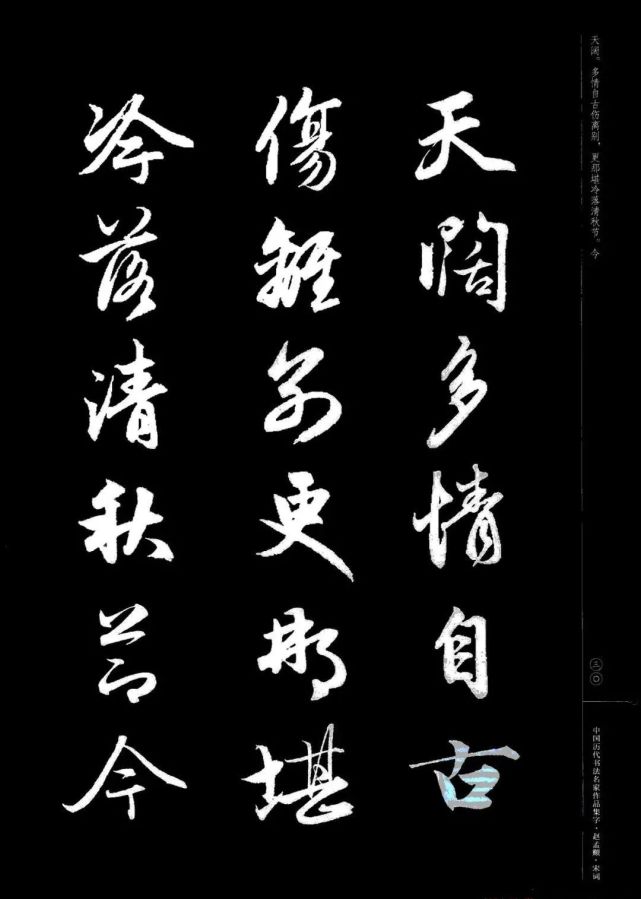 天闊多情自古
傷離別更那堪
冷落清秋節今
天阔。多情自古伤离别，更那堪冷落清秋节。今
三〇
中国历代书法名家作品集字·赵孟頫·宋词